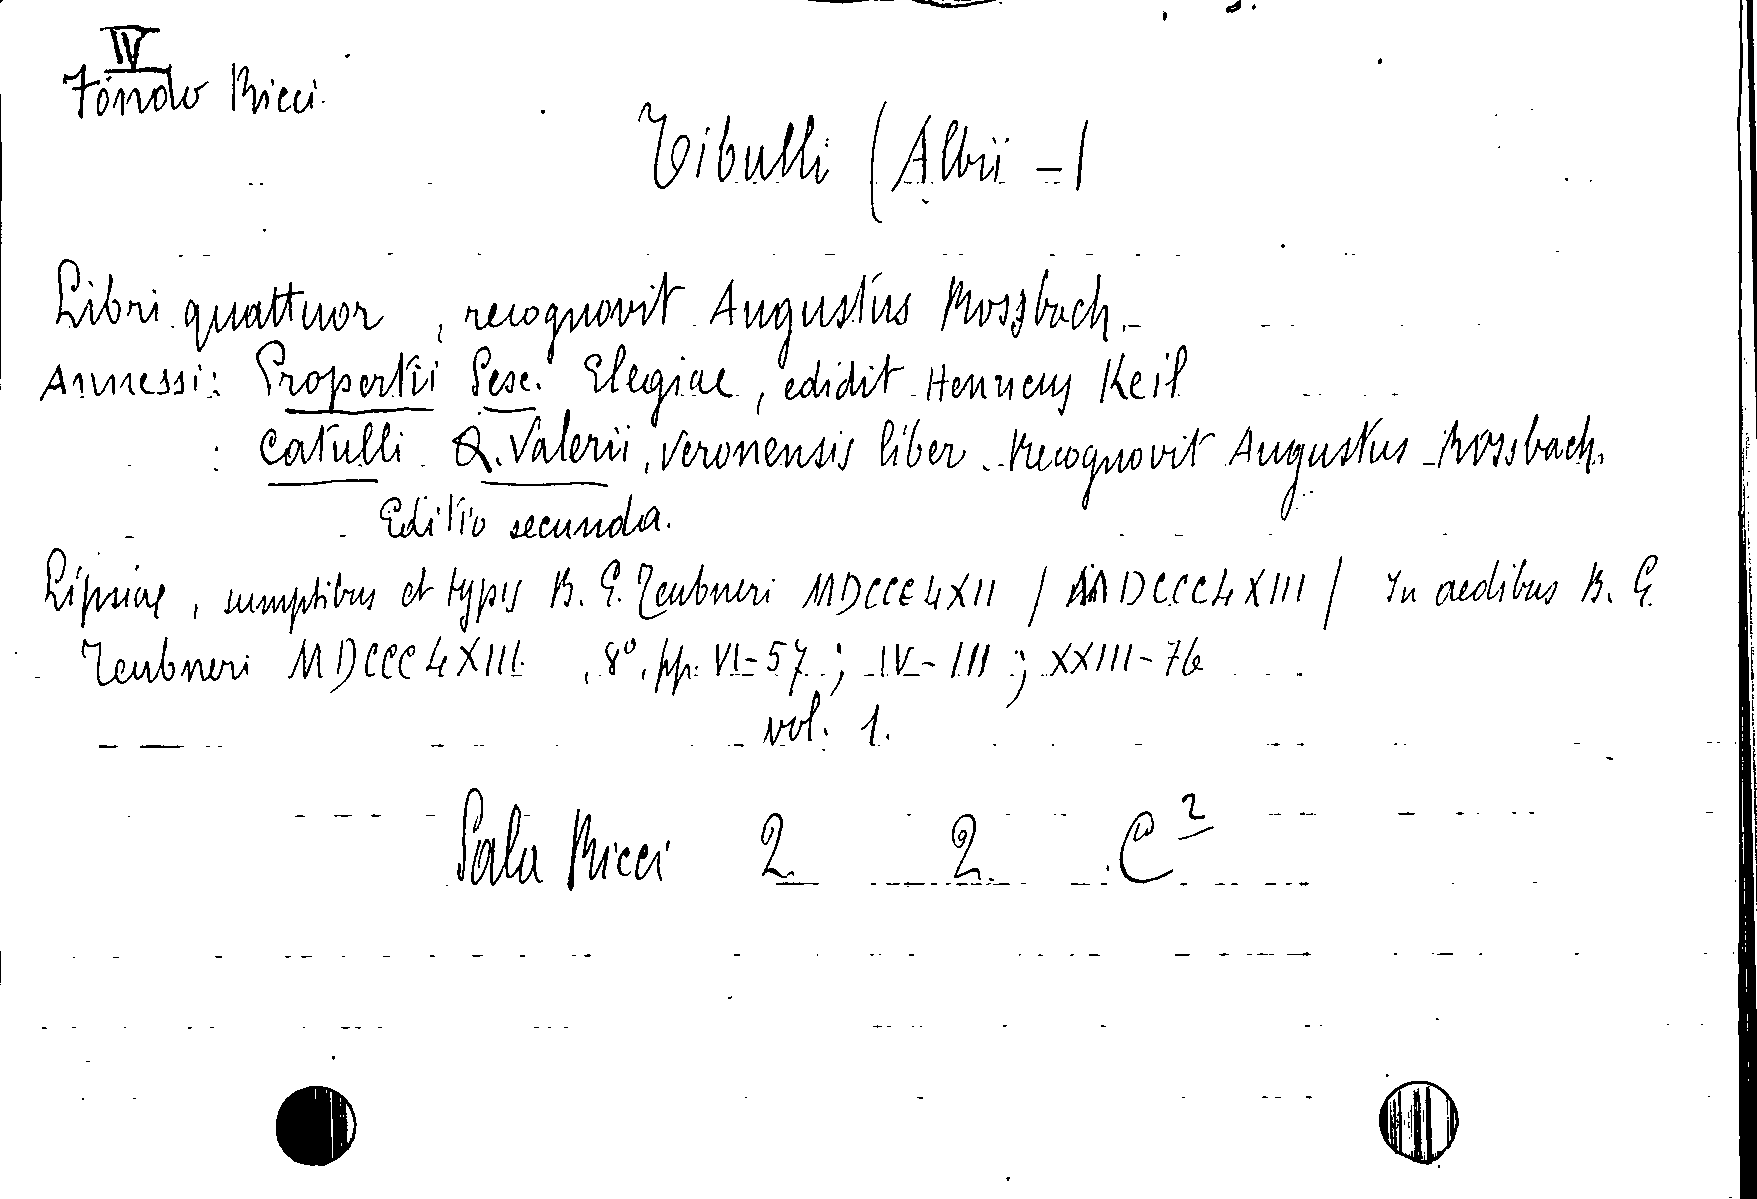 IV
Fondo Ricci.
Tibulli (Albii -)
Libri quattuor, recognovit Augustus Rossbach.-
Annessi: Propertii Sesc. Elegiae, edidit Henricus Keil
: Catulli Q. Valerii, Veronensis liber. Recognovit Augustus Rossbach.
Editio secunda.
Lipsiae, sumptibus et typis B. G. Teubneri MDCCCLXII / MDCCCLXIII / In aedibus B. G.
Teubneri MDCCCLXIII. 8°, pp. VI-57; IV-III; XXIII-76
vol. 1.
Sala Ricci 2 2 C²